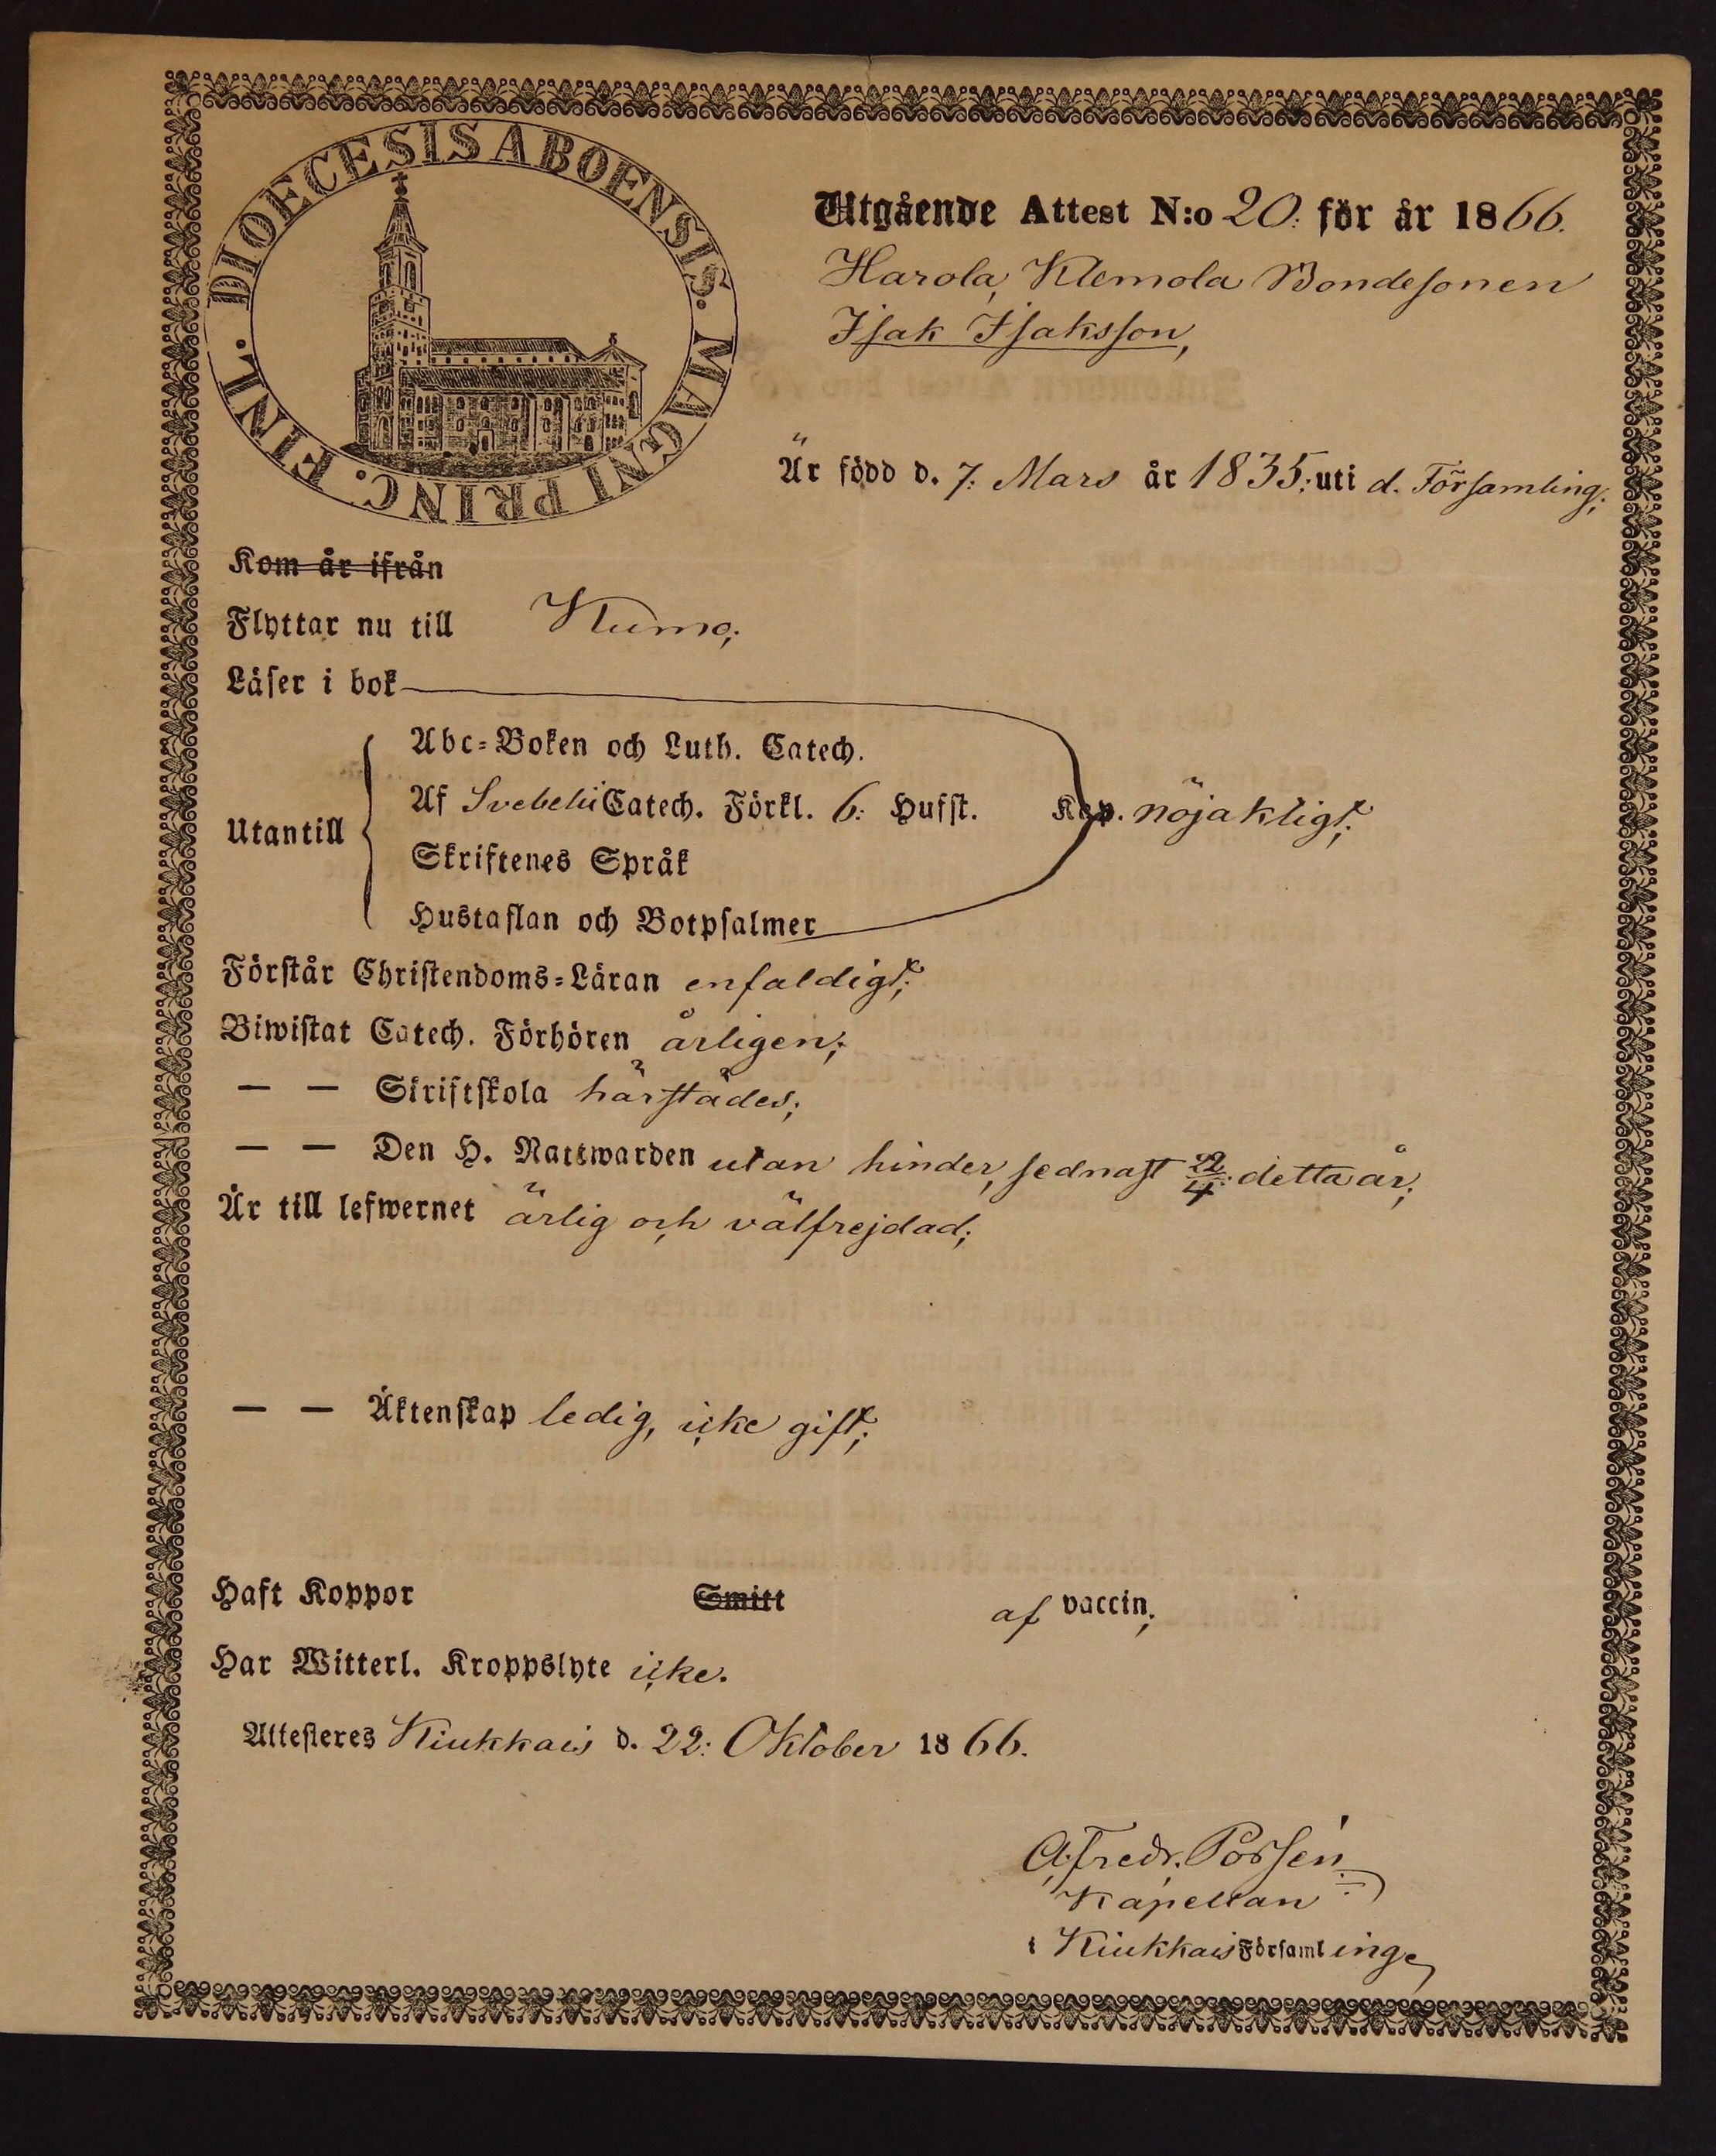 DIOECESIS ABOENSIS. MAGNI PRINC. FINL.
Utgående Attest N:o 20: för år 1866.
Harola, Klemola Bondesonen
Isak Isaksson,
Är född d. 7: Mars år 1835; uti d. Församling;
Kom år ifrån
Flyttar nu till Kumo;
Läser i bok
Abc-Boken och Luth. Catech.
Utantill Af Svebelii Catech. Förkl. 6: Hufst. Kap. nöjakligt;
Skriftenes Språk
Hustaflan och Botpsalmer
Förstår Christendoms-Läran enfaldigt;
Biwistat Catech. Förhören årligen;
— — Skriftskola härstädes;
— — Den H. Nattwarden utan hinder, sednast 22/4: detta år;
Är till lefwernet ärlig och välfrejdad;
— — Äktenskap ledig, icke gift;
Haft Koppor Smitt af vaccin;
Har Witterl. Kroppslyte icke.
Attesteres Kiukkais d. 22: Oktober 1866.
A. Fredr. Porsén
Kapellan
i Kiukkais Församlinge